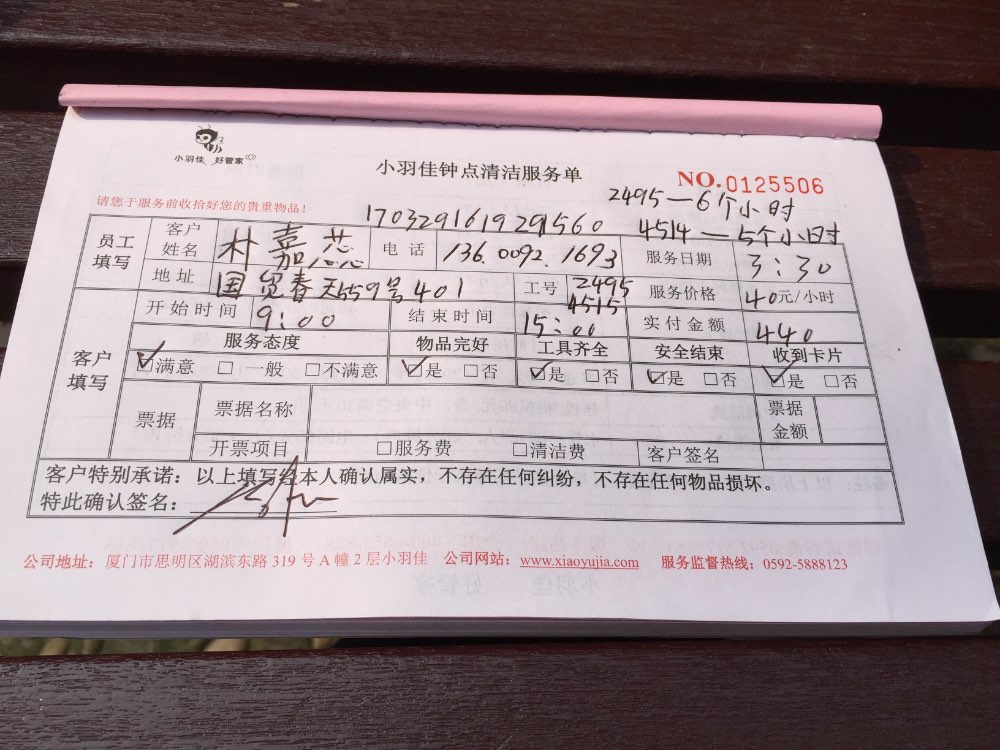 小羽佳 好管家
小羽佳钟点清洁服务单
NO.0125506
请您于服务前收拾好您的贵重物品！
2495—6个小时
1703291619291560
4514—5个小时
员工填写 客户姓名 朴嘉芯 电话 136.0092.1693 服务日期 3:30
地址 国贸春天559号401 工号 2495 4515 服务价格 40元/小时
开始时间 9:00 结束时间 15:00 实付金额 440
客户填写 服务态度 物品完好 工具齐全 安全结束 收到卡片
☑满意 □一般 □不满意 ☑是 □否 ☑是 □否 ☑是 □否 ☑是 □否
票据 票据名称 票据金额
开票项目 □服务费 □清洁费 客户签名
客户特别承诺：以上填写经本人确认属实，不存在任何纠纷，不存在任何物品损坏。
特此确认签名：
公司地址：厦门市思明区湖滨东路 319 号 A 幢 2 层小羽佳 公司网站：www.xiaoyujia.com 服务监督热线：0592-5888123